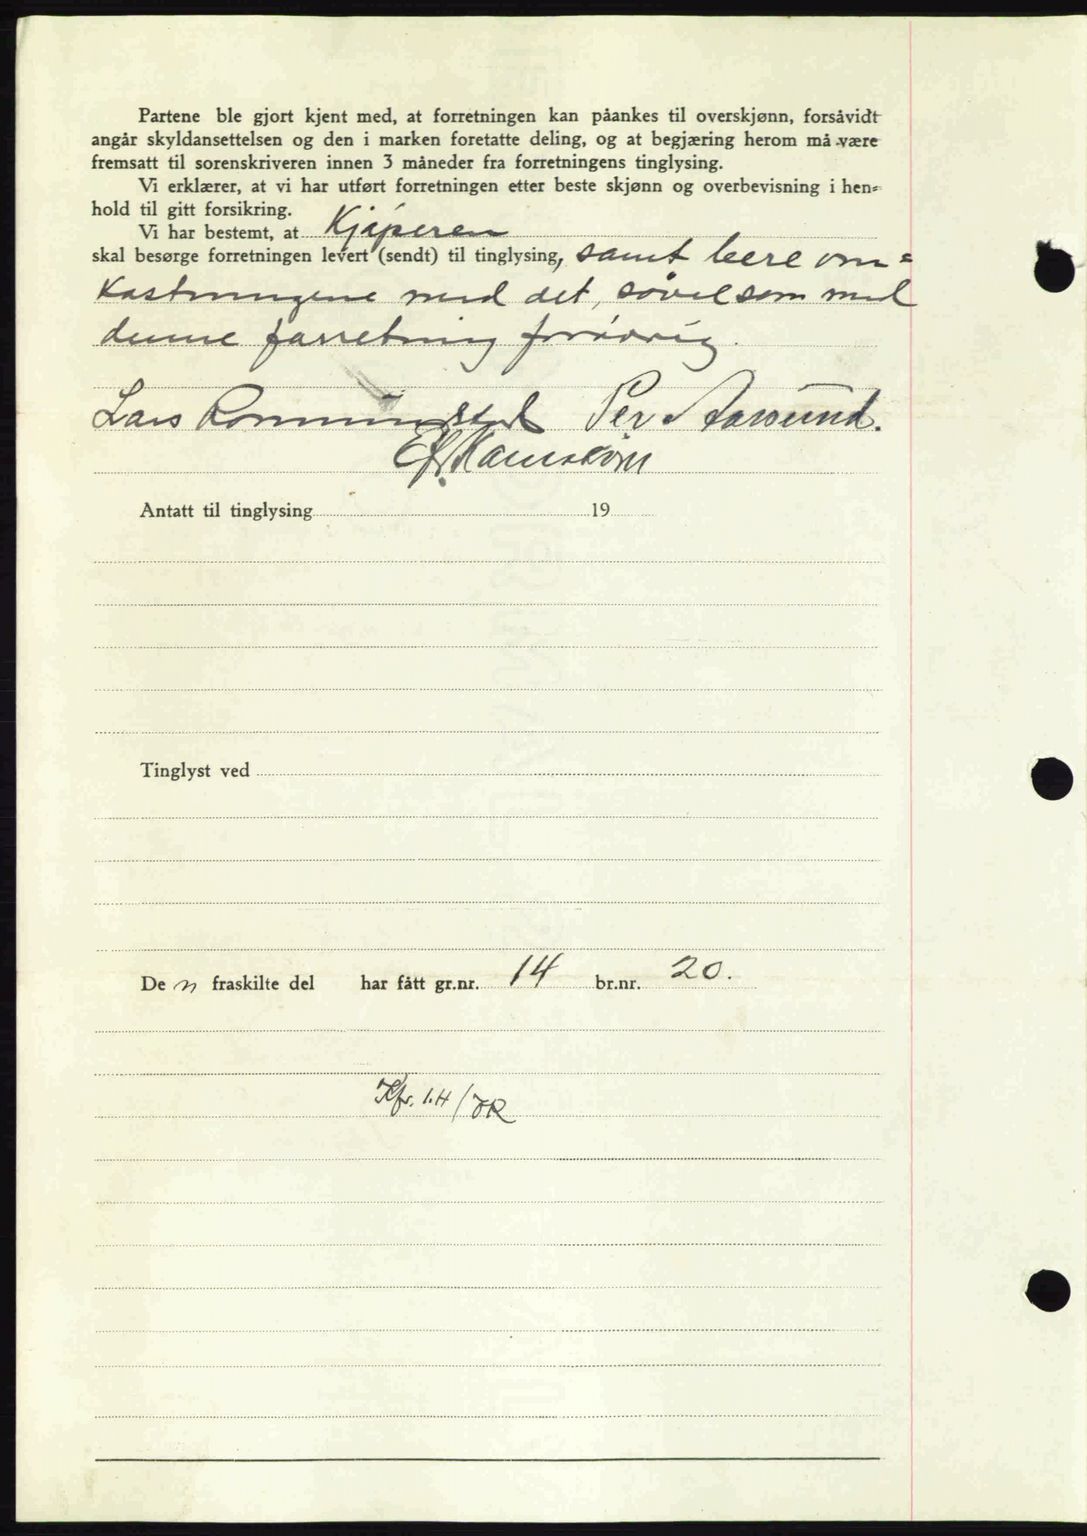 Partene ble gjort kjent med, at forretningen kan påankes til overskjønn, forsåvidt
angår skyldansettelsen og den i marken foretatte deling, og at begjæring herom må være
fremsatt til sorenskriveren innen 3 måneder fra forretningens tinglysing.
Vi erklærer, at vi har utført forretningen etter beste skjønn og overbevisning i hen-
hold til gitt forsikring.
Vi har bestemt, at Kjøperen
skal besørge forretningen levert (sendt) til tinglysing, samt bere om-
kostningene med det, såvel som med
denne forretning forøvrig.
Lars Per Aarsund.
Antatt til tinglysing 19
Tinglyst ved
De n fraskilte del har fått gr.nr. 14 br.nr. 20.
Kfr. I.H/JR